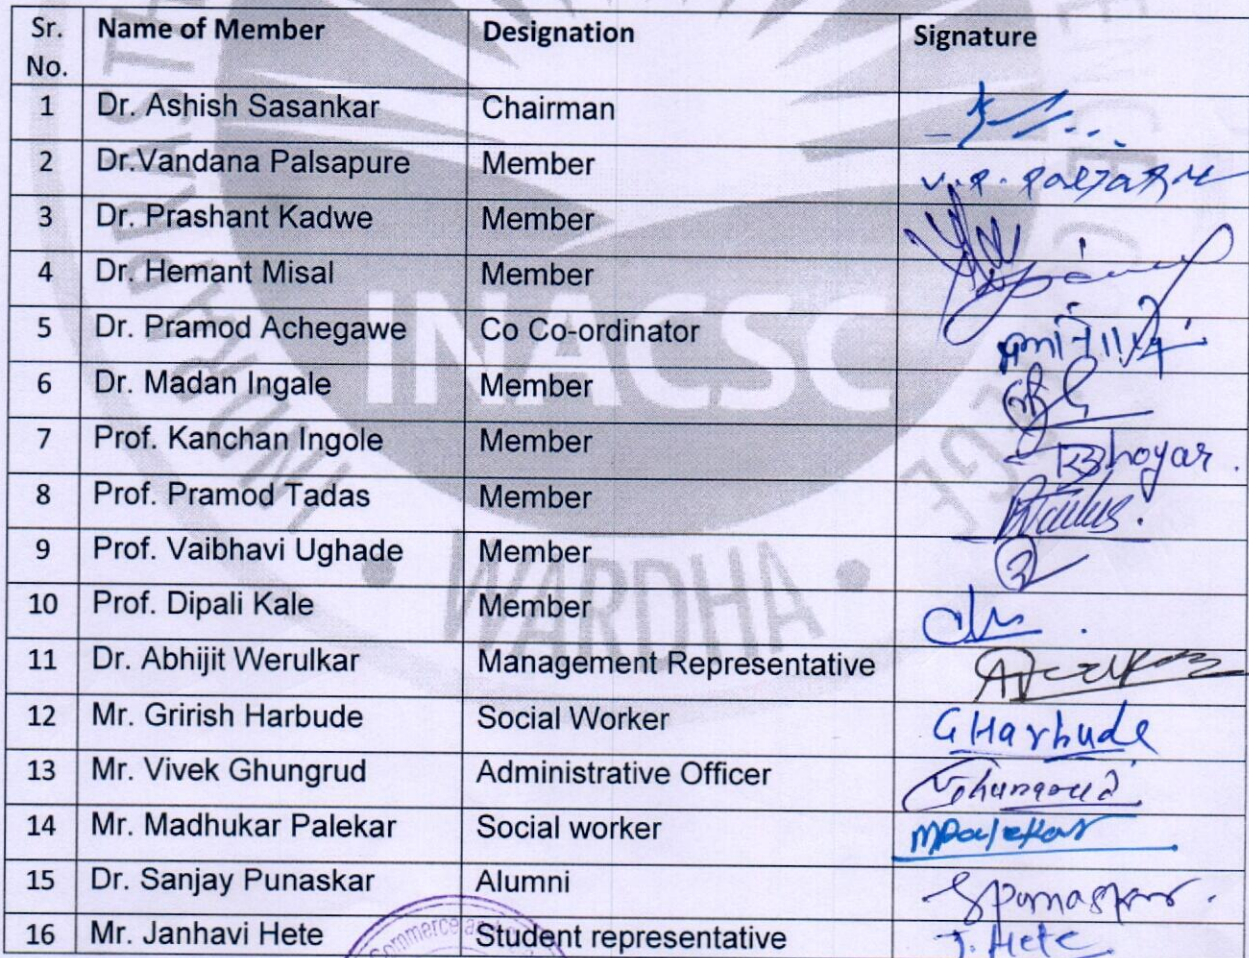 Sr. No. Name of Member Designation Signature
1 Dr. Ashish Sasankar Chairman
2 Dr.Vandana Palsapure Member
3 Dr. Prashant Kadwe Member
4 Dr. Hemant Misal Member
5 Dr. Pramod Achegawe Co Co-ordinator
6 Dr. Madan Ingale Member
7 Prof. Kanchan Ingole Member Bhoyar.
8 Prof. Pramod Tadas Member
9 Prof. Vaibhavi Ughade Member
10 Prof. Dipali Kale Member
11 Dr. Abhijit Werulkar Management Representative
12 Mr. Grirish Harbude Social Worker GHarbude
13 Mr. Vivek Ghungrud Administrative Officer
14 Mr. Madhukar Palekar Social worker MPalekar
15 Dr. Sanjay Punaskar Alumni
16 Mr. Janhavi Hete Student representative J. Hete
INACSC
WARDHA